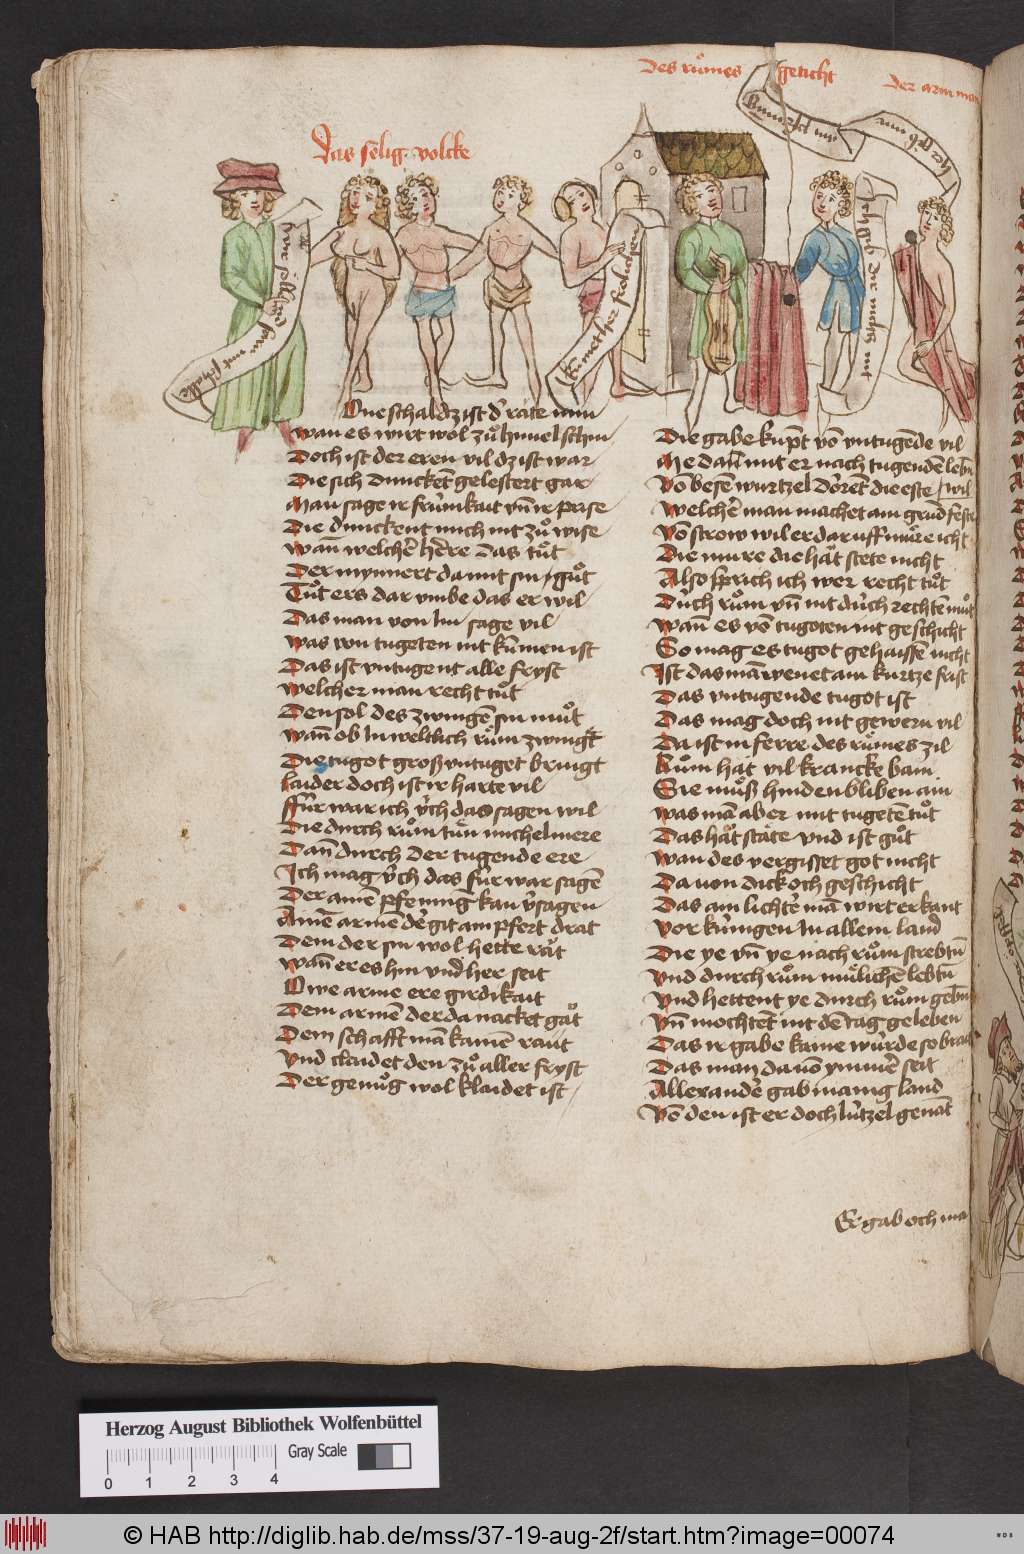 Des růmes geticht
Der arm man
Das selig volcke
Kumether frolichen
Ich gib dir nichtz nit
One schaldz ist d' rate min
wan es wirt wol zů himel schin
Doch ist der eren vil dz ist war
Die sich dunckēt gelestert gar
Man sage ir frümkait vn̄ ir prise
Die dunckent mich nit zů wise
wan̄ welchē h're das tůt
Der mynnert da mit sin gůt
Tůt ers dar vmbe das er wil
Das man von Im sage vil
was von tugeten nit kūmen ist
Das ist vntugent alle fryst
welcher man recht tůt
Den sol des zwingē sin můt
wan̄ ob In weltlich rům zwingt
Die tugot groß vntuget bringt
laider doch ist ir harte vil
ffür war ich v̈ch das sagen wil
Die durch rům tůn michel mere
Dan̄ durch der tugende ere
Ich mag v̈ch das für war sagē
Der amē pfenning kan v'sagen
Amē armē d'e git am pfert drat
Dem der sin wol hette rät
wan̄ er es hin vnd her seit
Owe arme ere girdikait
Dem armē der da nacket gåt
Dem schafft mā kainē raut
vnd claidet den zů aller fryst
Der genůg wol klaidet ist
Die gabe kūpt vō vntugēde vil
Me dan̄ mit er nach tugendē lebn̄
Vō besē wurtzel dorēt die este
wil
welchē man machet am grund feste
Vō strow wil er daruff mure icht
Die mure die hät stete nicht
Also sprich ich wer recht tůt
Durch rům vn̄ nit durch rechtē můt
wan̄ es vō tugoten nit geschicht
So mag es tugot gehaissē nicht
Ist das mā wenet am kurtze frist
Das vntugende tugot ist
Das mag doch nit gewern vil
Da ist in ferre des růmes zil
Rům hat vil krancke bain
Sie můß hinden bliben ain
was mā aber mit tugetē tůt
Das hät stäte vnd ist gůt
wan des vergisset got nicht
Da von dick och geschicht
Das am lichtē mā wirt erkant
vor kungen In allem land
Die ye vn̄ ye nach rům strebtn̄
vnd durch rům mulichē lebtn̄
vnd hettent ye durch rům gebn̄
vn̄ mochtēt nit dē tag geleben
Das ir gabe kame wurde so brait
Das man da vō ymmē seit
Allexandē gab manig land
Vō den ist er doch lützel genāt
Er gab och ma
Herzog August Bibliothek Wolfenbüttel
Gray Scale
0 1 2 3 4
© HAB http://diglib.hab.de/mss/37-19-aug-2f/start.htm?image=00074